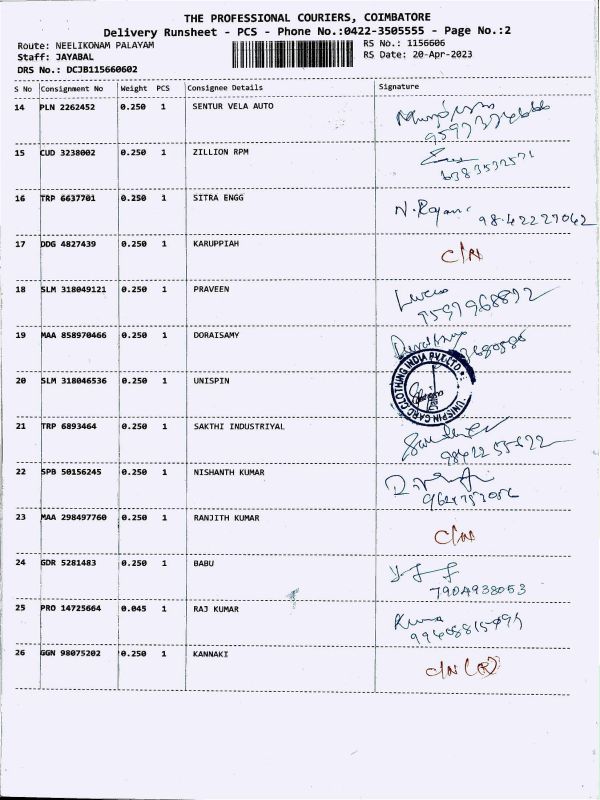 THE PROFESSIONAL COURIERS, COIMBATORE
Delivery Runsheet - PCS - Phone No.:0422-3505555 - Page No.:2
Route: NEELIKONAM PALAYAM RS No.: 1156606
Staff: JAYABAL RS Date: 20-Apr-2023
DRS No.: DCJB115660602
S No Consignment No Weight PCS Consignee Details Signature
14 PLN 2262452 0.250 1 SENTUR VELA AUTO
15 CUD 3238002 0.250 1 ZILLION RPM
6383532571
16 TRP 6637701 0.250 1 SITRA ENGG
N. Rajan 9842227062
17 DDG 4827439 0.250 1 KARUPPIAH C/N
18 SLM 318049121 0.250 1 PRAVEEN
9597968892
19 MAA 858970466 0.250 1 DORAISAMY
20 SLM 318046536 0.250 1 UNISPIN
UNISPIN CARD CLOTHING INDIA PVT.LTD.
21 TRP 6893464 0.250 1 SAKTHI INDUSTRIYAL
22 SPB 50156245 0.250 1 NISHANTH KUMAR
23 MAA 298497760 0.250 1 RANJITH KUMAR C/N
24 GDR 5281483 0.250 1 BABU
7904938053
25 PRO 14725664 0.045 1 RAJ KUMAR
Kuma
26 GGN 98075202 0.250 1 KANNAKI C/N (R)